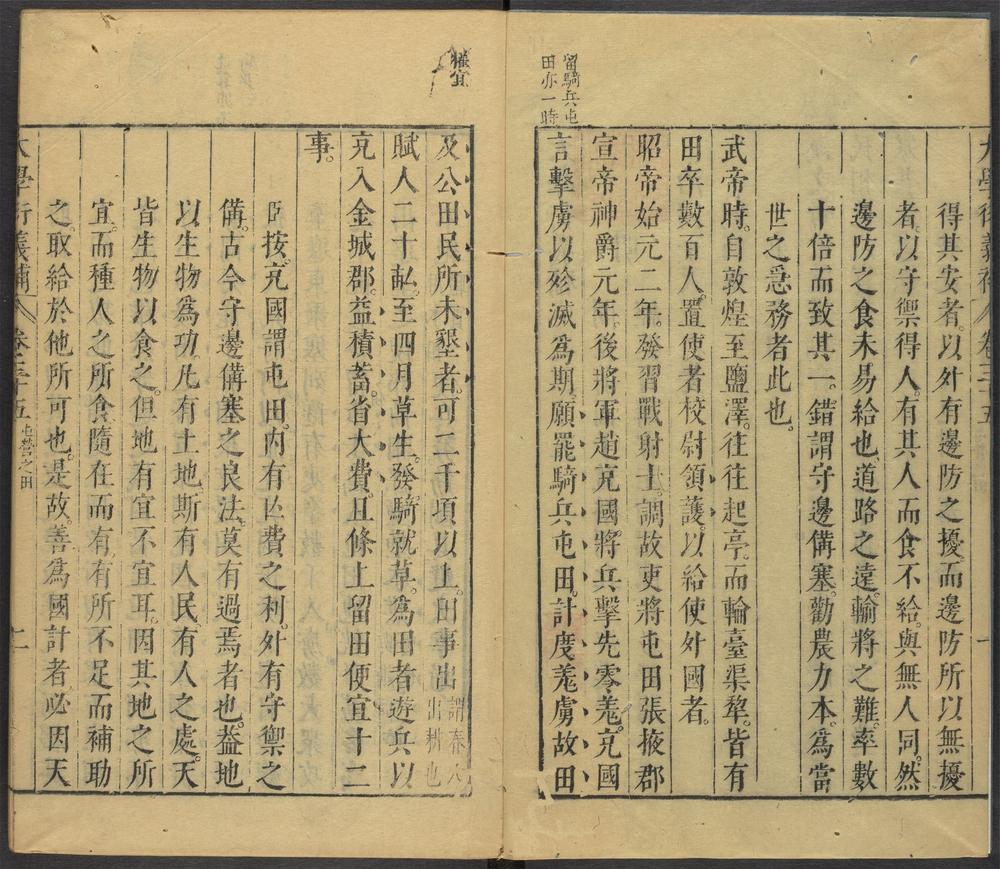 大學衍義補 卷三十五 一
得其安者。以外有邊防之擾而邊防所以無擾
者。以守禦得人。有其人而食不給與無人同。然
邊防之食未易給也。道路之遠。輸將之難。率數
十倍而致其一。錯謂守邊備塞。勸農力本。爲當
世之急務者此也。
武帝時。自敦煌至鹽澤。往往起亭。而輪臺渠犂。皆有
田卒數百人。置使者校尉領護。以給使外國者。
昭帝始元二年。發習戰射士。調故吏將屯田張掖郡
宣帝神爵元年。後將軍趙充國將兵擊先零羗。充國
言擊虜以殄滅爲期。願罷騎兵屯田。計度羗虜故田
留騎兵屯
田亦一時
權宜
及公田民所未墾者。可二千頃以上。田事出謂春人出耕也
賦人二十畝。至四月草生。發騎就草。爲田者遊兵以
充入金城郡。益積蓄。省大費。且條上留田便宜十二
事。
臣按。充國謂屯田。內有亡費之利。外有守禦之
備。古今守邊備塞之良法。莫有過焉者也。葢地
以生物爲功。凡有土地斯有人民。有人之處。天
皆生物以食之。但地有宜不宜耳。因其地之所
宜。而種人之所食。隨在而有。有所不足而補助
之。取給於他所可也。是故。善爲國計者。必因天
大學衍義補 卷三十五 屯營之田 二